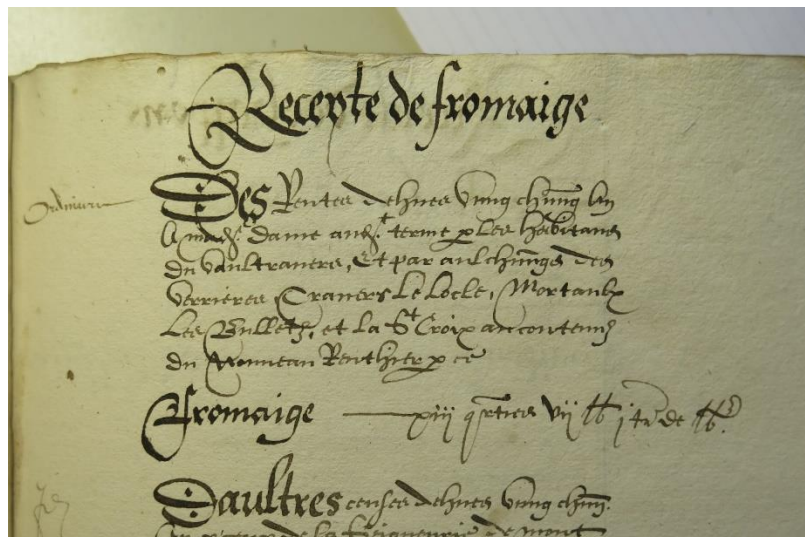 Recepte de fromaige
Ordinaire
Des Rentes dehues ung chung an
A mad. dame aud. terme p les habitans
du vaultravers, Et par aulchungs des
verrieres, Travers Le Locle, Mortaulx
Les Bulletz, et la St Croix au contenuz
du nouveau Renthier p ce
Fromaige xiij qrties vij lb j tr de lb
Daultres censes dehues ung chun
de la seigneurie de mont